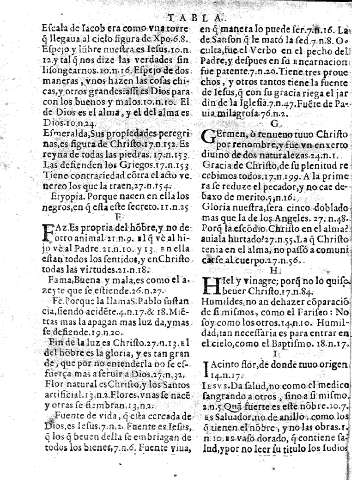 TABLA.
Escala de Iacob era como vna torre
q̃ llegaua al cielo figura de Xpo.6.8.
Espejo y libre nuestra es Iesus.10.n.
12.y tal q̃ nos dize las verdades sin
lisongearnos.10.n.16. Espejo de dos
maneras, vnos hazen las cosas chi-
cas, y otros grandes: assi es Dios para
con los buenos y malos.10.n.10. El
de Dios es el alma, y el del alma es
Dios.10.n.24.
Esmeralda, Sus propiedades peregri-
nas, es figura de Christo.17.n.152. Es
reyna de todas las piedras. 17.n.153.
Las defienden los Griegos.17.n.153
Tiene contrariedad cõtra el acto ve-
nereo los que la traen.27.n.154.
Etyopia. Porque nacen en ella los
negros, en q̃ està este secreto.11.n.25
F
FAZ. Es propria del hõbre, y no de
otro animal: 21.n.9. a lq̃ vè al hijo
vè al Padre. 21.n.10. y 13. en ella
estan todos los sentidos, y en Christo
todas las virtudes.21.n.18.
Fama, Buena y mala, es como el a-
zeyte que se estiende.26.n.27.
Fè. Porque la llama S. Pablo sustan-
cia, siendo acidẽte.4.n.17.& 18. Miẽ-
tras mas la apagan mas luz da, y mas
se defiende.13.n.20.
Fin de la luz es Christo.27.n.13. el
del hõbre es la gloria, y es tan gran
de, que por no entenderla no se es-
fuerça mas a seruir a Dios.27.n.32.
Flor natural es Christo, y los Santos
artificial.13.n.2. Flores, vnas se nacẽ
y otras se siembran.13.n.2.
Fuente de vida, q̃ està cercada de
Dios, es Iesus.7.n.2. Fuente es Iesus,
q̃ los q̃ beuen della se embriagan de
todos los bienes.7.n.6. Fuente viua,
en q̃ manera lo puede ser.7.n.16. La
de Sanson q̃ le matò la sed.7.n.8. O-
culta, fue el Verbo en el pecho del
Padre, y despues en su encarnacion
fue patente.7.n.20. Tiene tres proue
chos, y otros tantos tiene la fuente
de Iesus, q̃ con su gracia riega el jar
din de la Iglesia.7.n.47. Fuẽte de Pa-
uia milagrosa.76.n.2.
G.
GErmen, ò renueuo tuuo Christo
por renombre, y fue vn enxerto
diuino de dos naturalezas.24.n.1.
Gracia de Christo, de su plenitud re
cebimos todos.17.n.199. A la prime
ra se reduze el pecador, y no cae de-
baxo de merito.5.n.16.
Gloria nuestra, sera cinco dobladо
mas que la de los Angeles. 27.n.48.
Porq̃ la escõdio Christo en el alma?
auiala hurtado? 27.n.55. La q̃ Christo
tenia en el alma, no passò a comuni
carse al cuerpo.27.n.56.
H.
HIel y vinagre; porq̃ no lo quiso
beuer Christo.17.n.84.
Humildes, no an de hazer cõparaciõ
de si mismos, como el Fariseo: No
soy como los otros.14.n.10. Humil-
dad, tan necessaria es para entrar en
el cielo, como el Baptismo. 18.n.17.
I
IAcinto flor, de donde tuuo origen
14.n.17.
IESVS. Da salud, no como el medico
sangrando a otros, sino a si mismo.
2.n.5. Quã fuerte es este nõbre.10.7.
Es Saluador, no de anillo, como los
q̃ tienen el nõbre, y no las obras.1.
n.10. es vaso dorado, q̃ contiene sa-
lud, y por no leer su titulo los Iudios